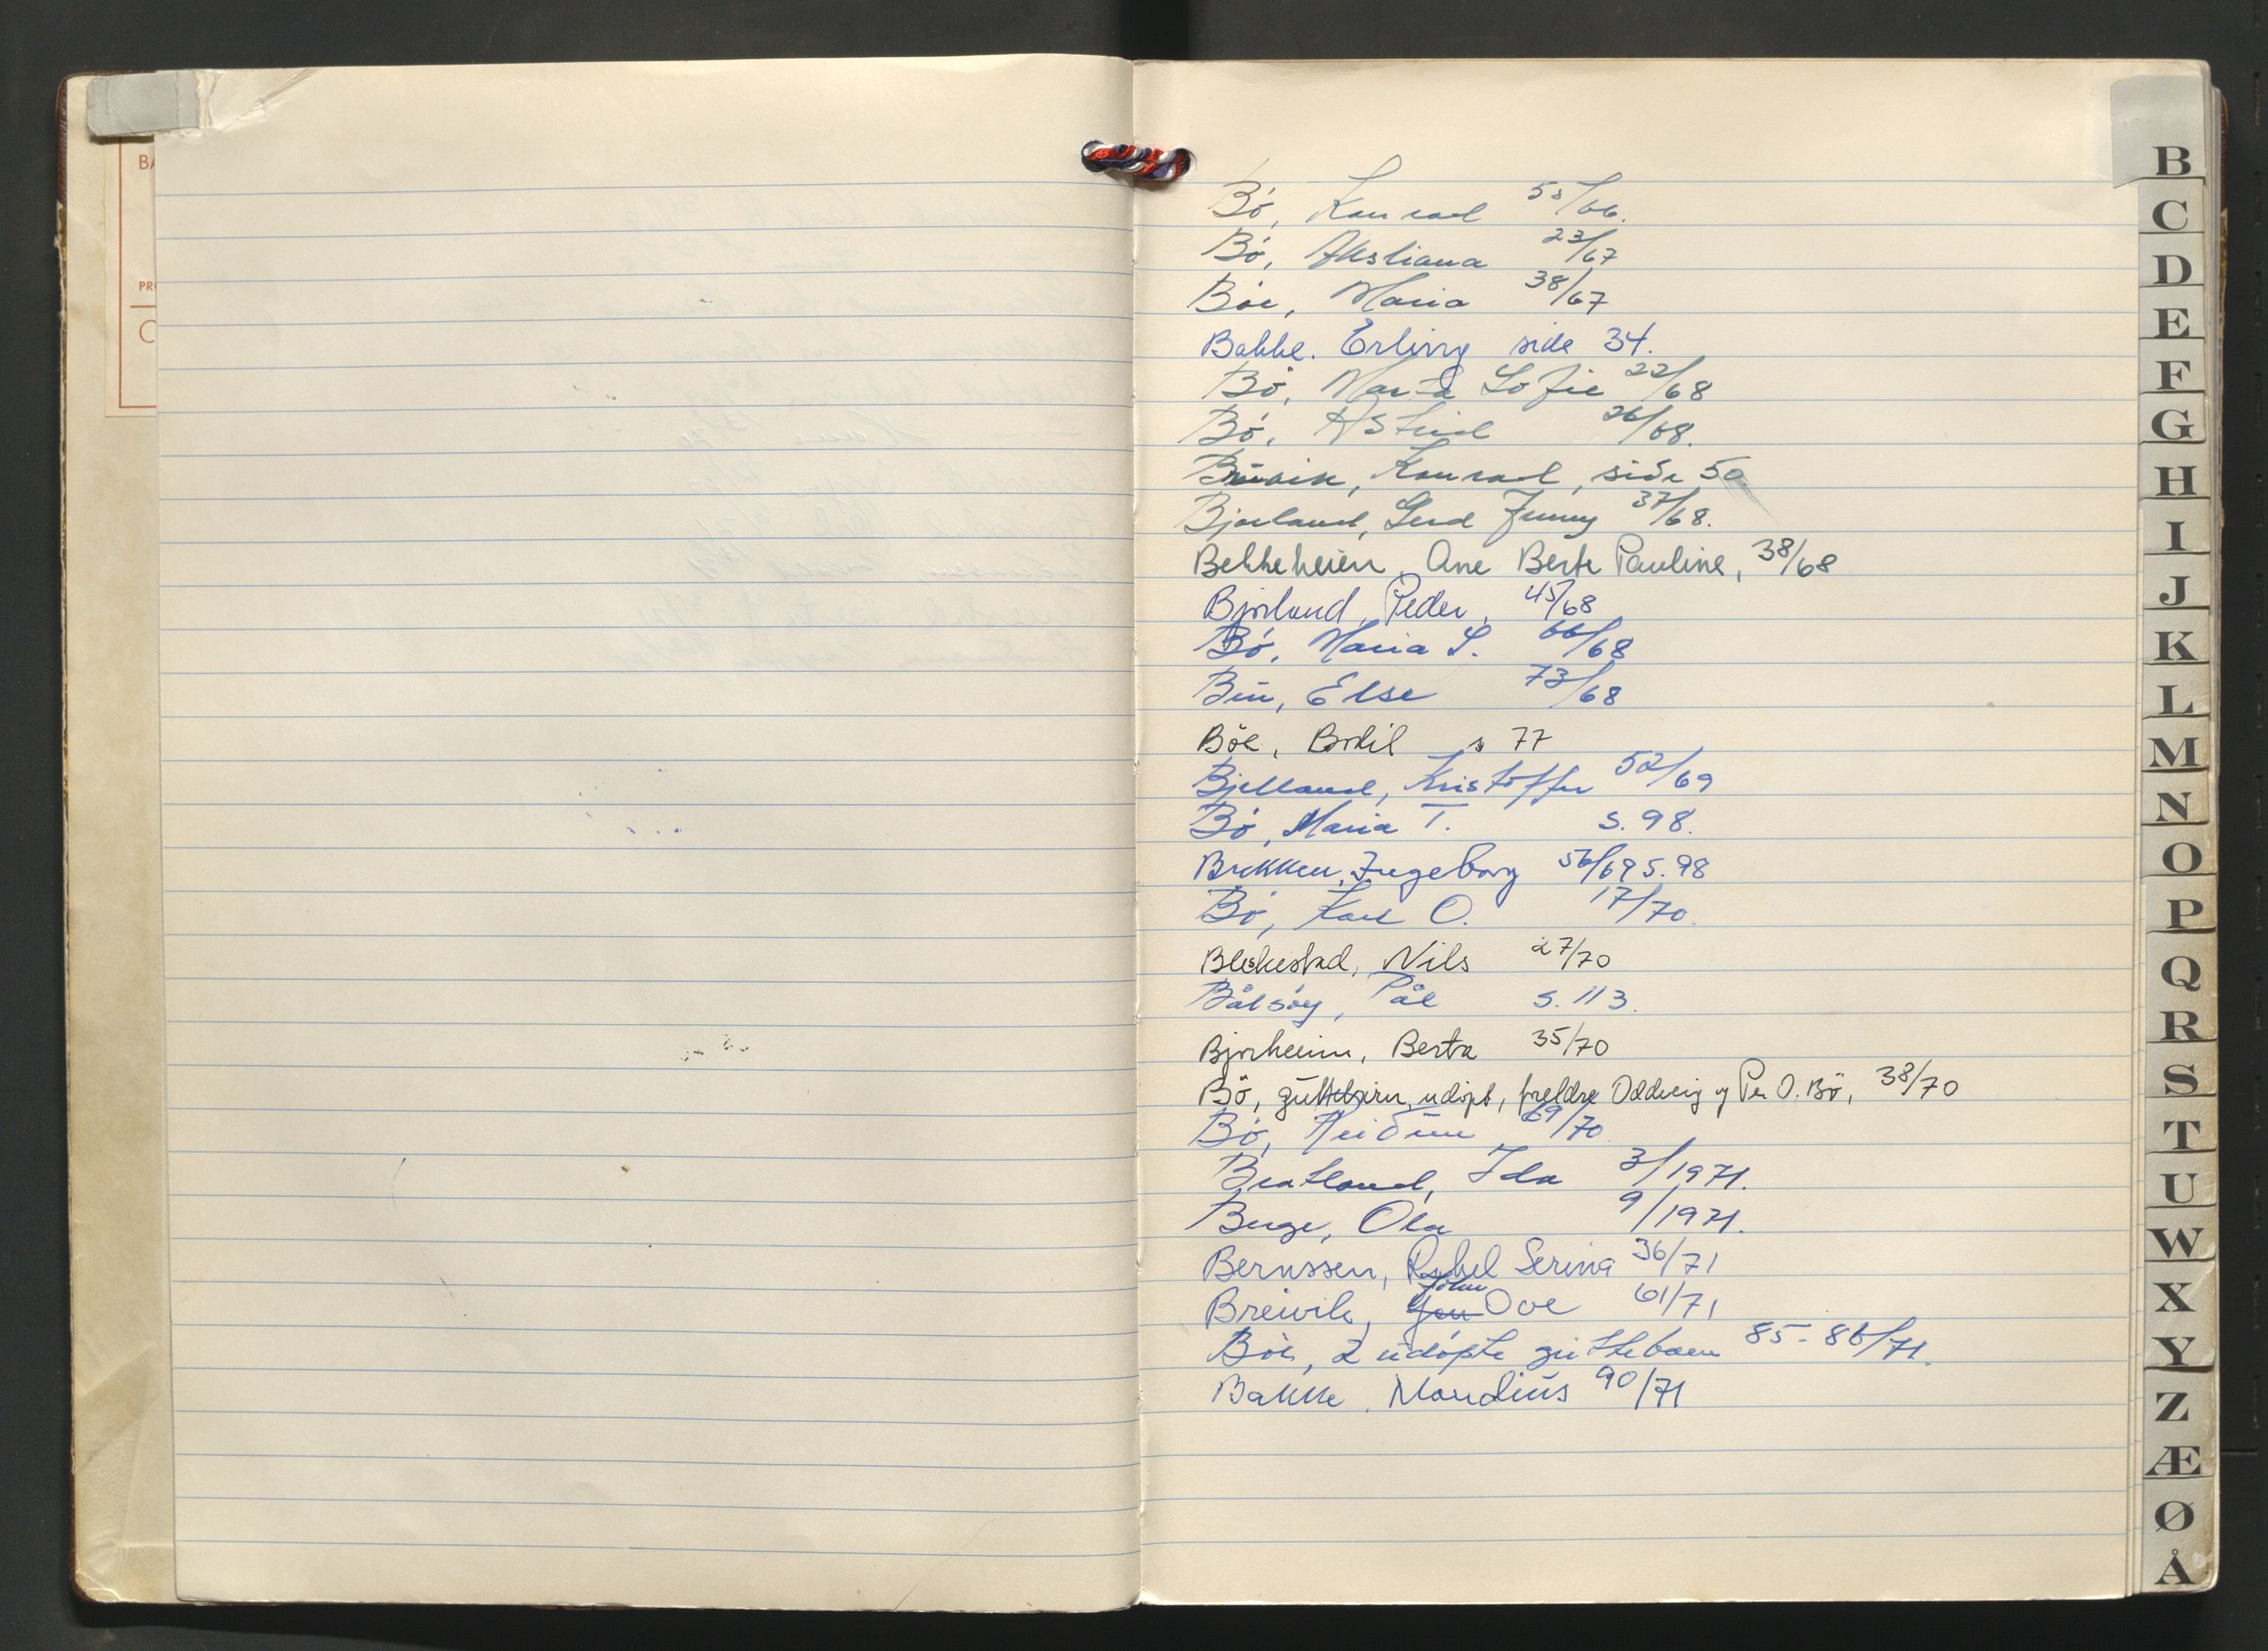 BA
PR
C
Bö, Konrad 55/66.
Bö, Aksliana 23/67
Böe, Maria 38/67
Bakke. Erling side 34.
Bö, Marta Sofie 22/68
Bö, Astrid 26/68.
Konrad, side 50
Bjorland, Gerd Jenny 37/68.
Bekkeheien, Ane Berte Pauline, 38/68
Bjorland, Peder, 45/68
Bö, Maria S. 66/68
Else 73/68
Böe, Bodil s 77
Bjelland, Kristoffer 52/69
Bö, Maria T. s. 98.
Brekken, Ingeborg 56/69 s. 98
Bö, Karl O. 17/70.
Bleskestad, Nils 27/70
Båtsöy, Pål s. 113.
Bjorheim, Berta 35/70
Bö, guttebarn, udöpt, foreldre Oddveig og Per O. Bö, 38/70
Bö, 69/70
Bratland, Ida 3/1971.
Berge, Ola 9/1971.
Bernssen, Rakel Serina 36/71
John
Breivik, Jon Ove 61/71
Böe, 2 udöpte guttebarn 85-86/71.
Bakke, Mandius 90/71
B
C
D
E
F
G
H
I
J
K
L
M
N
O
P
Q
R
S
T
U
W
X
Y
Z
Æ
Ø
Å